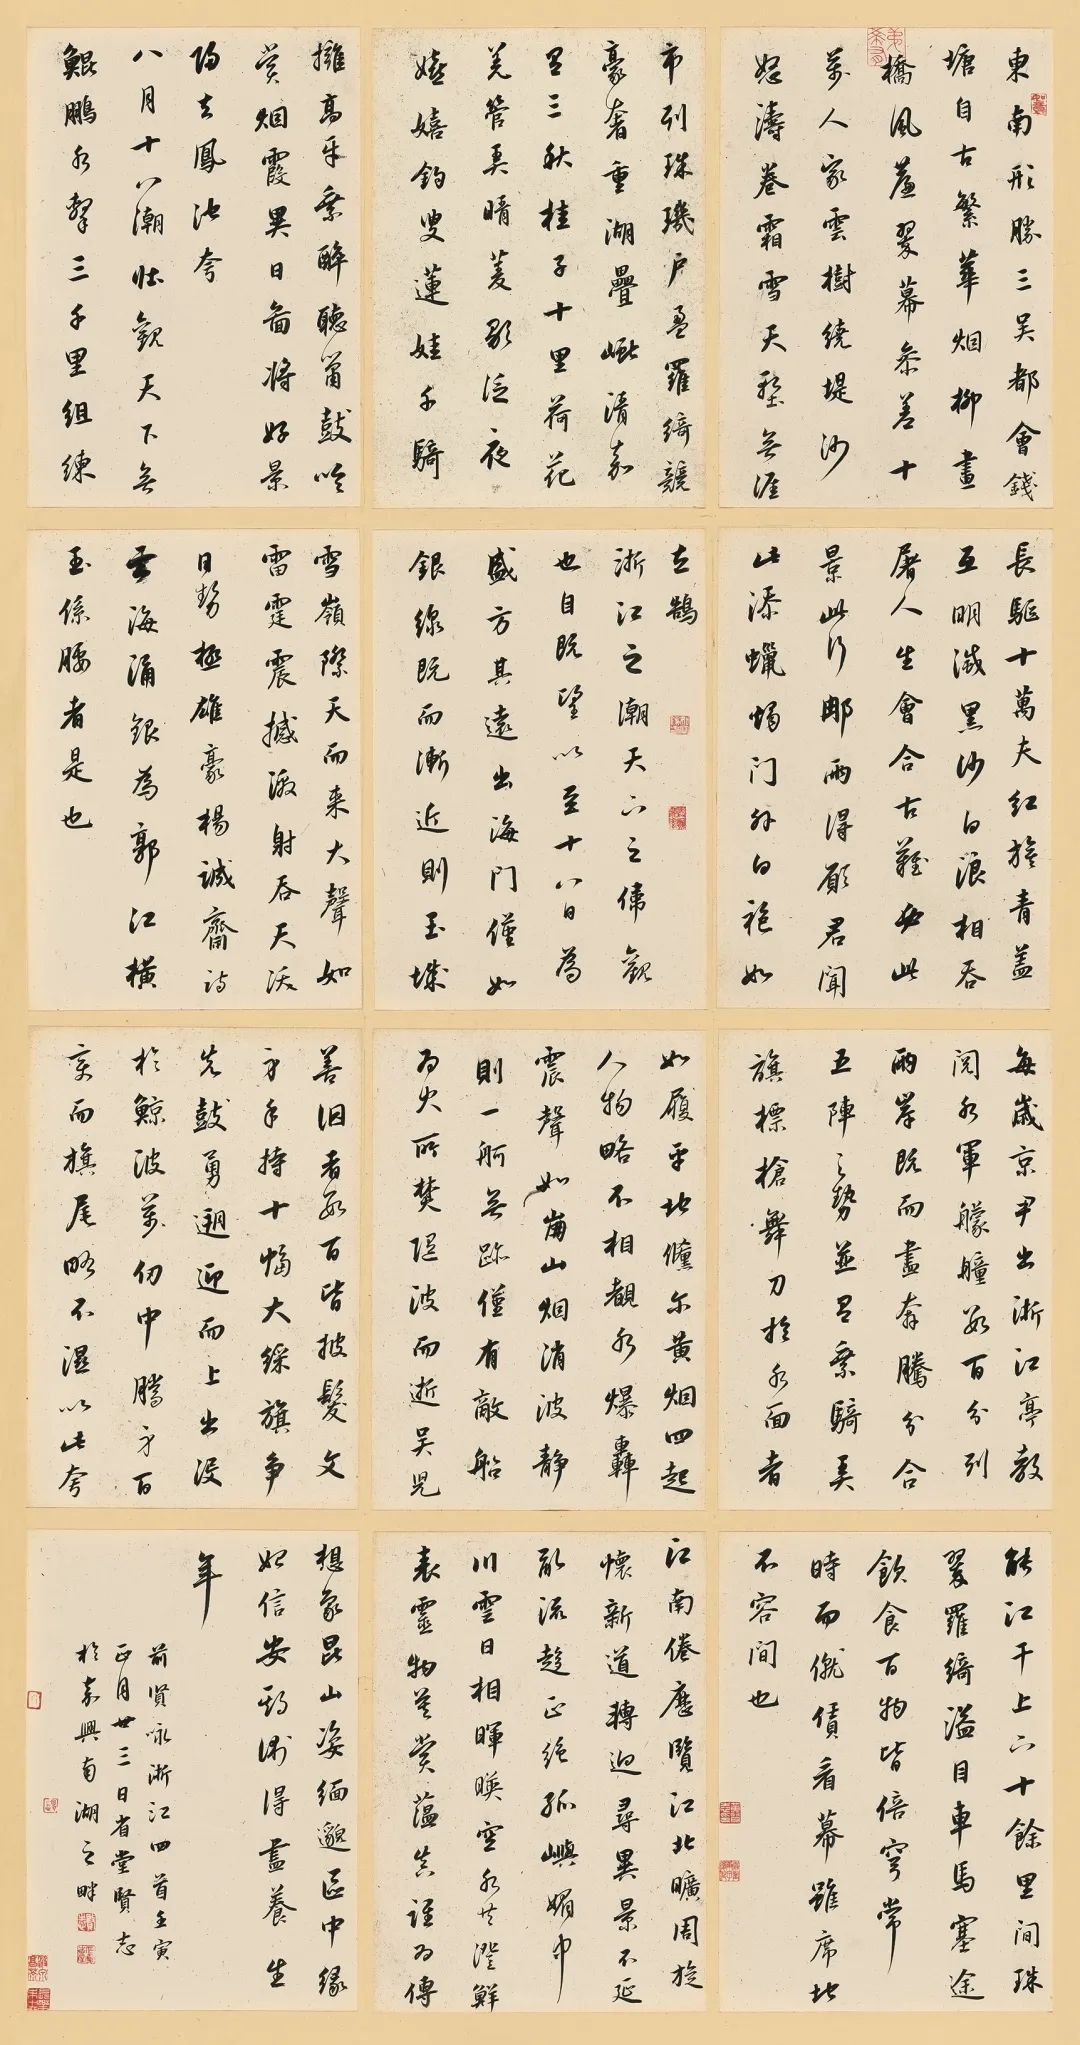 東南形勝三吳都會錢
塘自古繁華烟柳畫
橋風簾翠幕參差十
萬人家雲樹繞堤沙
怒濤卷霜雪天塹無涯
市列珠璣戶盈羅綺競
豪奢重湖疊巘清嘉
有三秋桂子十里荷花
羌管弄晴菱歌泛夜
嬉嬉釣叟蓮娃千騎
擁高牙乘醉聽簫鼓吟
賞烟霞異日圖將好景
歸去鳳池夸
八月十八潮壯觀天下無
鯤鵬水擊三千里組練
長驅十萬夫紅旌青蓋
互明滅黑沙白浪相吞
屠人生會合古難必此
景此行那兩得願君聞
此添蠟燭門外白袍如
立鵠
浙江之潮天下之偉觀
也自既望以至十八日為
盛方其遠出海門僅如
銀線既而漸近則玉城
雪嶺際天而来大聲如
雷霆震撼激射吞天沃
日勢極雄豪楊誠齋詩
云海涌銀為郭江橫
玉係腰者是也
每歲京尹出浙江亭教
閱水軍艨艟數百分列
兩岸既而盡奔騰分合
五陣之勢並有乘騎弄
旗標槍舞刀於水面者
如履平地倏尔黃烟四起
人物略不相覩水爆轟
震聲如崩山烟消波静
則一舸無跡僅有敵船
為火所焚隨波而逝吳兒
善泅者數百皆披髮文
身手持十幅大綵旗争
先鼓勇遡迎而上出没
於鯨波萬仞中騰身百
變而旗尾略不濕以此夸
能江干上下十餘里間珠
翠羅綺溢目車馬塞途
飲食百物皆倍穹常
時而僦賃看幕雖席地
不容間也
江南倦歷覽江北曠周旋
懷新道轉迥尋異景不延
亂流趨正絕孤嶼媚中
川雲日相暉映空水共澄鮮
表靈物莫賞蘊真誰為傳
想象昆山姿緬邈區中緣
始信安期術得盡養生
年
前賢咏浙江四首壬寅
正月廿三日省堂賢志
於嘉興南湖之畔